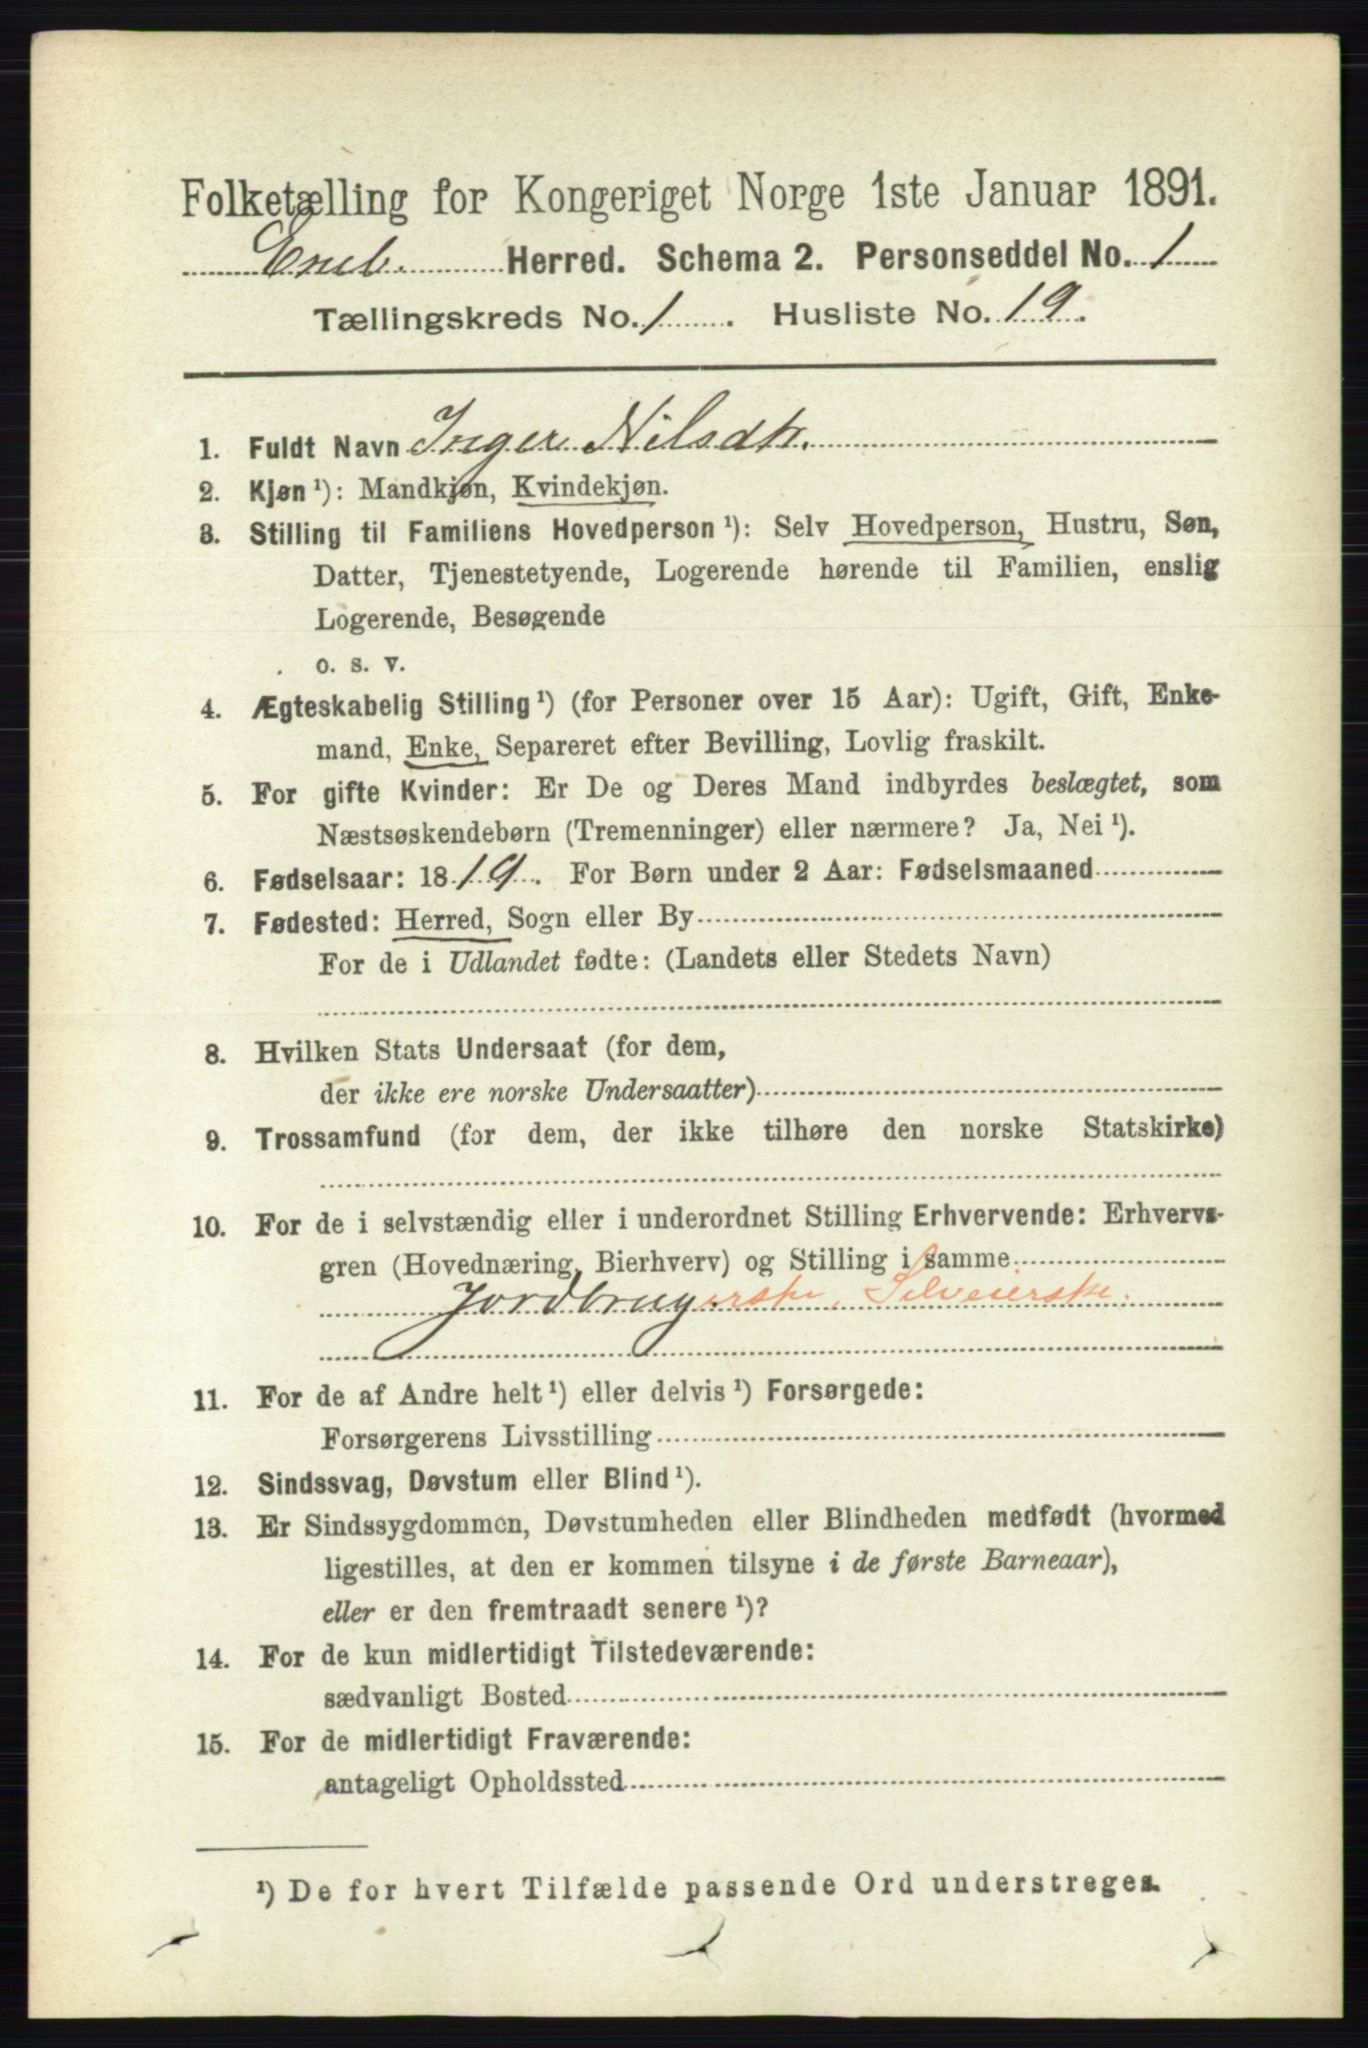 Folketælling for Kongeriget Norge 1ste Januar 1891.
Herred. Schema 2. Personseddel No. 1
Tællingskreds No. 1. Husliste No. 19.
1. Fuldt Navn Inger Nilsdtr.
2. Kjøn ¹): Mandkjøn, Kvindekjøn.
3. Stilling til Familiens Hovedperson ¹): Selv Hovedperson, Hustru, Søn,
Datter, Tjenestetyende, Logerende hørende til Familien, enslig
Logerende, Besøgende
o. s. v.
4. Ægteskabelig Stilling ¹) (for Personer over 15 Aar): Ugift, Gift, Enke-
mand, Enke, Separeret efter Bevilling, Lovlig fraskilt.
5. For gifte Kvinder: Er De og Deres Mand indbyrdes beslægtet, som
Næstsøskendebørn (Tremenninger) eller nærmere? Ja, Nei ¹).
6. Fødselsaar: 1819. For Børn under 2 Aar: Fødselsmaaned
7. Fødested: Herred, Sogn eller By
For de i Udlandet fødte: (Landets eller Stedets Navn)
8. Hvilken Stats Undersaat (for dem,
der ikke ere norske Undersaatter)
9. Trossamfund (for dem, der ikke tilhøre den norske Statskirke)
10. For de i selvstændig eller i underordnet Stilling Erhvervende: Erhvervs-
gren (Hovednæring, Bierhverv) og Stilling i samme
Jordbrugerske, Selveierske.
11. For de af Andre helt ¹) eller delvis ¹) Forsørgede:
Forsørgerens Livsstilling
12. Sindssvag, Døvstum eller Blind ¹).
13. Er Sindssygdommen, Døvstumheden eller Blindheden medfødt (hvormed
ligestilles, at den er kommen tilsyne i de første Barneaar),
eller er den fremtraadt senere ¹)?
14. For de kun midlertidigt Tilstedeværende:
sædvanligt Bosted
15. For de midlertidigt Fraværende:
antageligt Opholdssted
¹) De for hvert Tilfælde passende Ord understreges.